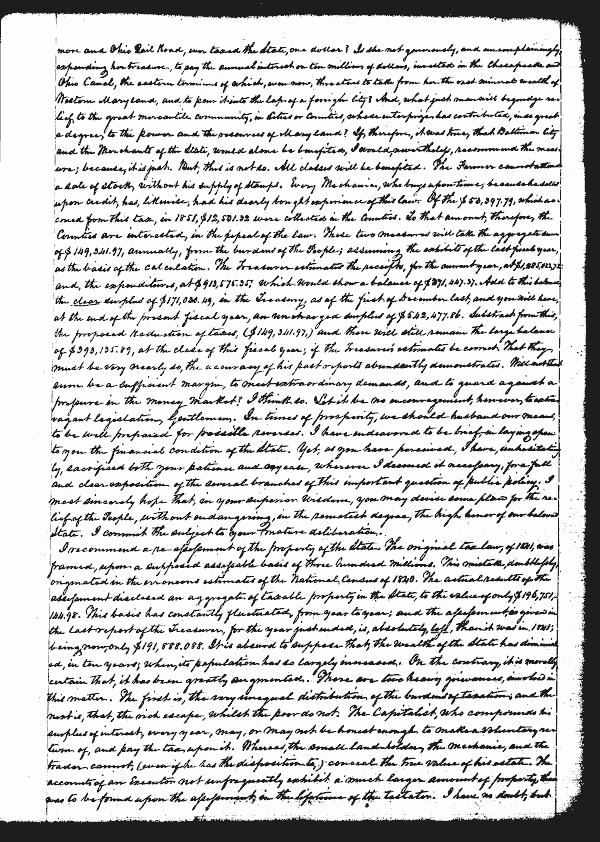 more and Ohio Rail Road, ever taxed the State, one dollar? Is she not generously, and uncomplainingly,
expending her treasure, to pay the annual interest on ten millions of dollars, invested in the Chesapeake and
Ohio Canal, the eastern terminus of which, even now, threatens to take from her the vast mineral wealth of
Western Maryland, and to pour it into the lap of a foreign City? And, what just man will begrudge re-
lief, to the great mercantile community, in Cities or Counties, whose enterprize has contributed, in so great
a degree, to the power and the resources of Maryland? If, therefore, it was true, that Baltimore City
and the Merchants of the State, would alone be benefited, I would, nevertheless, recommend the meas-
ure; because, it is just. But, this is not so. All classes will be benefited. The Farmer cannot attend
a sale of stock, without his supply of stamps. Every Mechanic, who buys upon time, because he sells
upon credit, has, likewise, had his dearly bought experience of this law. Of the $53,397.79, which ac-
crued from this tax, in 1851, $12,531.32 were collected in the Counties. To that amount, therefore, the
Counties are interested, in the repeal of the law. These two measures will take the aggregate sum
of $149,341.97, annually, from the burdens of the People; assuming the exhibits of the last fiscal year,
as the basis of the calculation. The Treasurer estimates the receipts, for the current year, at
and, the expenditures, at $913,575.35; which would show a balance of $371,447.37. Add to this balance
the clear surplus of $171,030.49, in the Treasury, as of the first of December last, and you will have,
at the end of the present fiscal year, an uncharged surplus of $542,477.86. Substract from this,
the proposed reduction of taxes, ($149,341.97,) and there will still remain the large balance
of $393,135.89, at the close of this fiscal year; if the Treasurer's estimates be correct. That they
must be very nearly so, the accuracy of his past reports abundantly demonstrates. Will not this
sum be a sufficient margin, to meet extraordinary demands, and to guard against a
pressure in the money market? I think so. Let it be no encouragement, however, to extra-
vagant legislation, Gentlemen. In times of prosperity, we should husband our means,
to be well prepared for possible reverses. I have endeavored to be brief, in laying open
to you the financial condition of the State. Yet, as you have perceived, I have, unhesitating-
ly, sacrificed both your patience and my ease, wherever I deemed it necessary, for a full
and clear exposition of the several branches of this important question of public policy. I
most sincerely hope that, in your superior wisdom, you may devise some plan for the re-
lief of the People, without endangering, in the remotest degree, the high honor of our beloved
State. I commit the subject to your mature deliberation.
I recommend a re-assessment of the property of the State. The original tax law, of 1841, was
framed, upon a supposed assessable basis of three hundred millions. This mistake, doubtlessly,
originated in the erroneous estimates of the National Census of 1840. The actual results of the
assessment disclosed an aggregate of taxable property in the State, to the value of only $196,751,
144.98. This basis has constantly fluctuated, from year to year; and the assessment, as given in
the last report of the Treasurer, for the year just ended, is, absolutely, less, than it was in 1841;
being now only $191,888.088. It is absurd to suppose that, the wealth of the State has diminish-
ed, in ten years, when, its population has so largely increased. On the contrary, it is morally
certain that, it has been greatly augmented. There are two heavy grievances, involved in
this matter. The first is, the very unequal distribution of the burdens of taxation; and the
next is, that, the rich escape, whilst the poor do not. The Capitalist, who compounds his
surplus of interest, every year, may, or may not be honest enough to make a voluntary re-
turn of, and pay the tax, upon it. Whereas, the small landholder, the mechanic, and the
trader cannot, (even if he has the disposition to,) conceal the true value of his estate. The
accounts of an Executor not unfrequently exhibit a much larger amount of property, than
was to be found upon the assessment, in the lifetime of the testator. I have no doubt, but